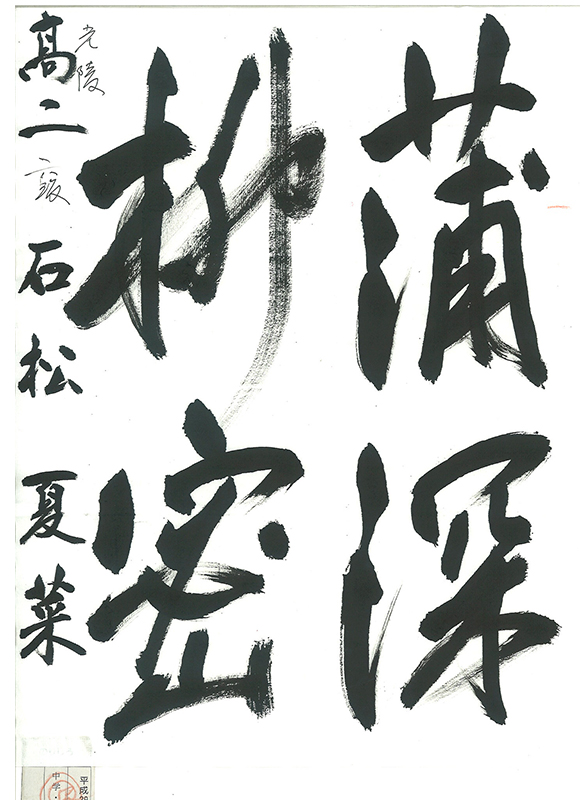 蒲深
柳密
光陵
高二 石松 夏菜
平成
中学・